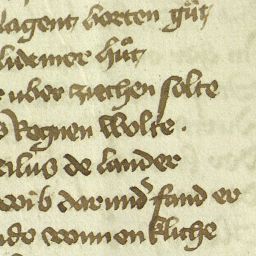 lagent borten gůt
lidemer hůt
r uber ziechen solte
Regnen wolte .
cilus de lander
wib darund fand er
nde wunnenkliche